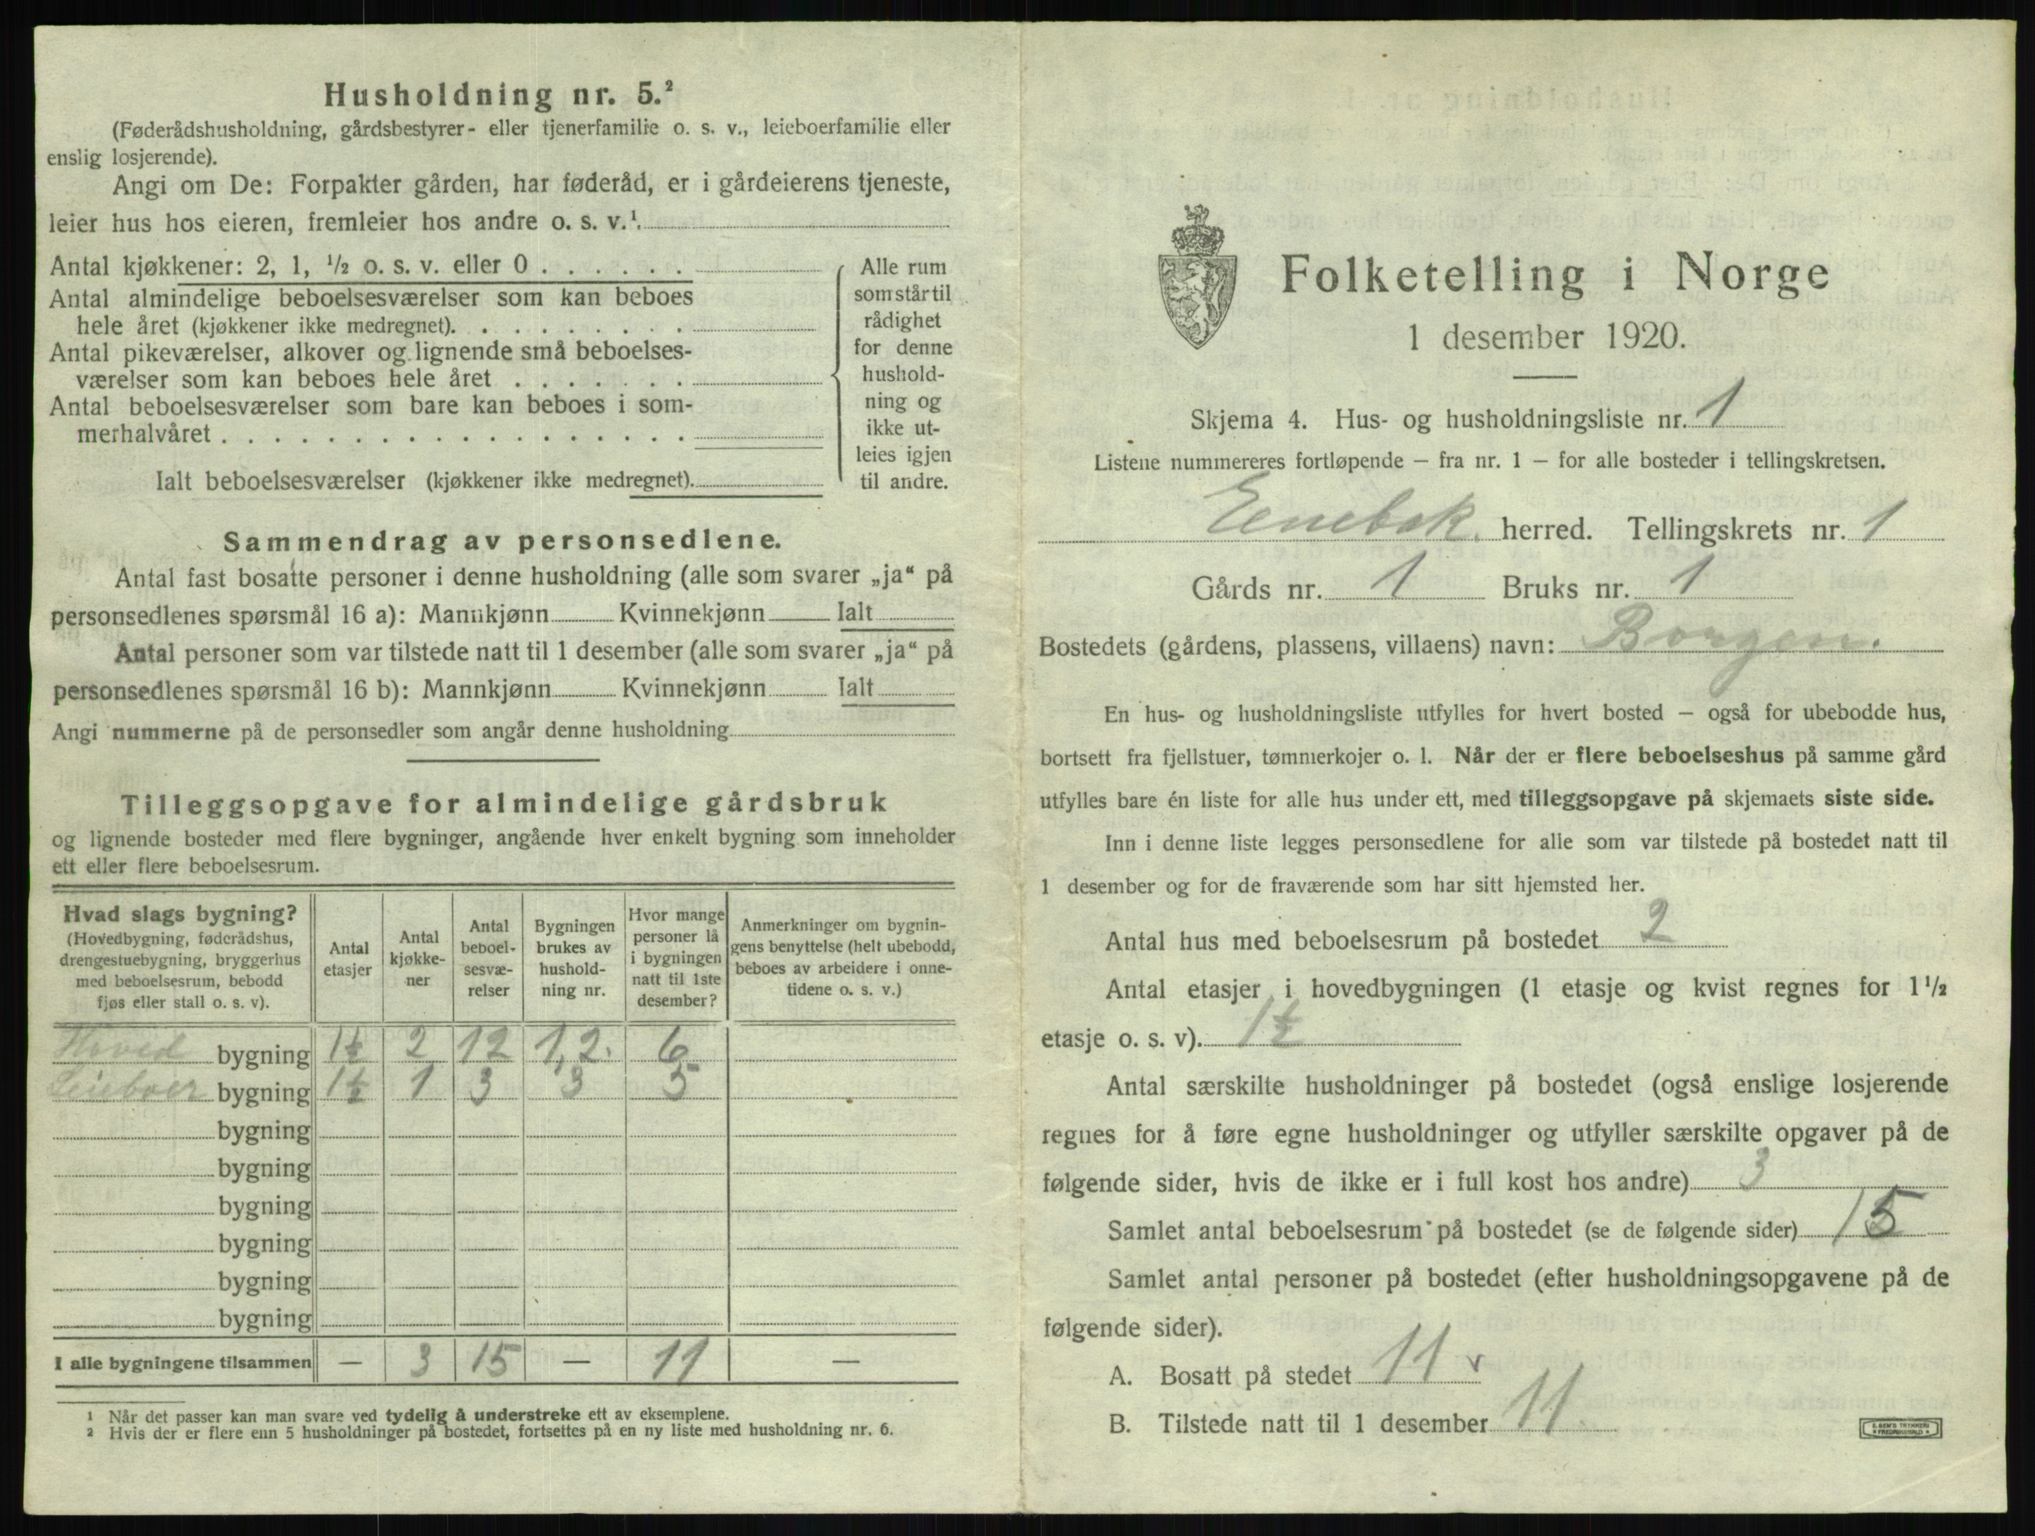 Husholdning nr. 5.²
(Føderådshusholdning, gårdsbestyrer- eller tjenerfamilie o. s. v., leieboerfamilie eller
enslig losjerende).
Angi om De: Forpakter gården, har føderåd, er i gårdeierens tjeneste,
leier hus hos eieren, fremleier hos andre o. s. v.¹.
Antal kjøkkener: 2, 1, ½ o. s. v. eller 0 . . . . . .
Antal almindelige beboelsesværelser som kan beboes
hele året (kjøkkener ikke medregnet). . . . . . . . .
Antal pikeværelser, alkover og lignende små beboelses-
værelser som kan beboes hele året . . . . . . .
Antal beboelsesværelser som bare kan beboes i som-
merhalvåret . . . . . . . . . . . . . . . . . .
Ialt beboelsesværelser (kjøkkener ikke medregnet).
Alle rum
som står til
rådighet
for denne
hushold-
ning og
ikke ut-
leies igjen
til andre.
Sammendrag av personsedlene.
Antal fast bosatte personer i denne husholdning (alle som svarer „ja“ på
personsedlenes spørsmål 16 a): Mannkjønn Kvinnekjønn Ialt
Antal personer som var tilstede natt til 1 desember (alle som svarer „ja“ på
personsedlenes spørsmål 16 b): Mannkjønn Kvinnekjønn Ialt
Angi nummerne på de personsedler som angår denne husholdning
Tilleggsopgave for almindelige gårdsbruk
og lignende bosteder med flere bygninger, angående hver enkelt bygning som inneholder
ett eller flere beboelsesrum.
Hvad slags bygning?
(Hovedbygning, føderådshus,
drengestuebygning, bryggerhus
med beboelsesrum, bebodd
fjøs eller stall o. s. v).
Antal
etasjer
Antal
kjøkke-
ner
Antal
beboel-
sesvæ-
relser
Bygningen
brukes av
hushold-
ning nr.
Hvor mange
personer lå
i bygningen
natt til 1ste
desember?
Anmerkninger om bygnin-
gens benyttelse (helt ubebodd,
beboes av arbeidere i onne-
tidene o. s. v.)
Hoved bygning 1½ 2 12 1,2. 6
Leieboer bygning 1½ 1 3 3 5
bygning
bygning
bygning
bygning
bygning
bygning
I alle bygningene tilsammen — 3 15 — 11 —
¹ Når det passer kan man svare ved tydelig å understreke ett av eksemplene.
² Hvis der er flere enn 5 husholdninger på bostedet, fortsettes på en ny liste med husholdning nr. 6.
Folketelling i Norge
1 desember 1920.
Skjema 4. Hus- og husholdningsliste nr. 1
Listene nummereres fortløpende — fra nr. 1 — for alle bosteder i tellingskretsen.
Enebak herred. Tellingskrets nr. 1
Gårds nr. 1 Bruks nr. 1
Bostedets (gårdens, plassens, villaens) navn: Borgen.
En hus- og husholdningsliste utfylles for hvert bosted — også for ubebodde hus,
bortsett fra fjellstuer, tømmerkojer o. l. Når der er flere beboelseshus på samme gård
utfylles bare én liste for alle hus under ett, med tilleggsopgave på skjemaets siste side.
Inn i denne liste legges personsedlene for alle som var tilstede på bostedet natt til
1 desember og for de fraværende som har sitt hjemsted her.
Antal hus med beboelsesrum på bostedet 2
Antal etasjer i hovedbygningen (1 etasje og kvist regnes for 1½
etasje o. s. v). 1½
Antal særskilte husholdninger på bostedet (også enslige losjerende
regnes for å føre egne husholdninger og utfyller særskilte opgaver på de
følgende sider, hvis de ikke er i full kost hos andre) 3
Samlet antal beboelsesrum på bostedet (se de følgende sider) 15
Samlet antal personer på bostedet (efter husholdningsopgavene på de
følgende sider).
A. Bosatt på stedet 11 v
B. Tilstede natt til 1 desember 11.